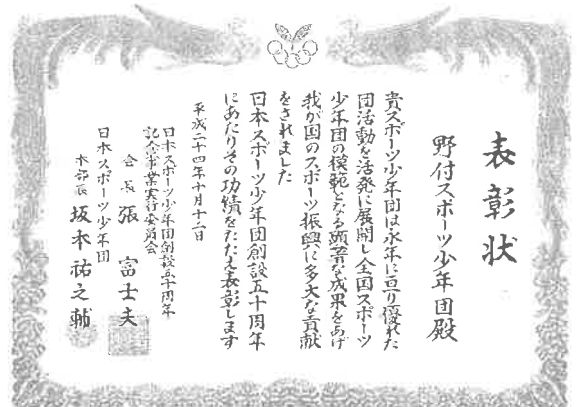 表彰状
野付スポーツ少年団殿
貴スポーツ少年団は永年に亘り優れた
団活動を活発に展開し全国スポーツ
少年団の模範となる顕著な成果をあげ
我が国のスポーツ振興に多大な貢献
をされました
日本スポーツ少年団創設五十周年
にあたりその功績をたたえ表彰します
平成二十四年十月十三日
日本スポーツ少年団創設五十周年
記念事業実行委員会
会長 張 富士夫
日本スポーツ少年団
本部長 坂本祐之輔